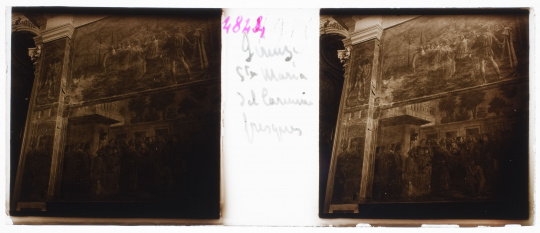 4842
Firenze
Sta Maria
del Carmine
fresques